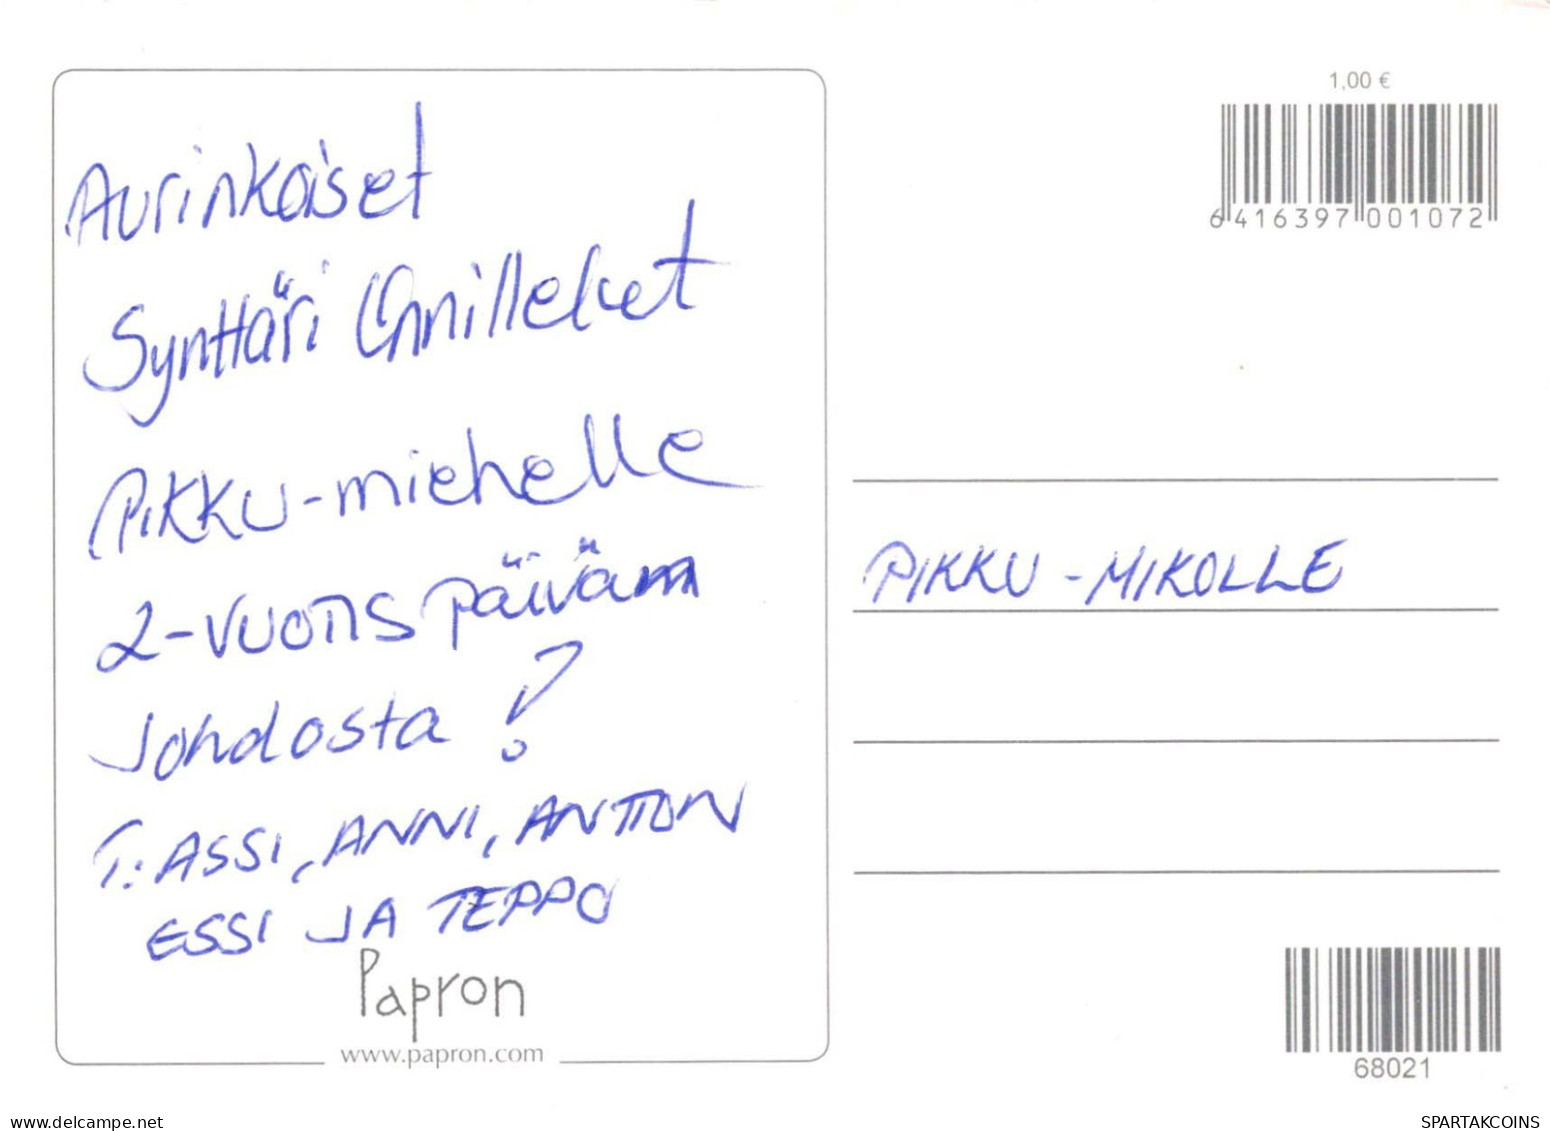 Aurinkaiset
Synttäri Onnillelut
Pikku-miehelle
2-vuotis päivän
Johdosta!
T: ASSI, ANNI, ANTTON
ESSI JA TEPPO
Papron
www.papron.com
1,00 €
6 416397 001072
PIKKU-MIKOLLE
68021
SPARTAKCOINS
www.delcampe.net